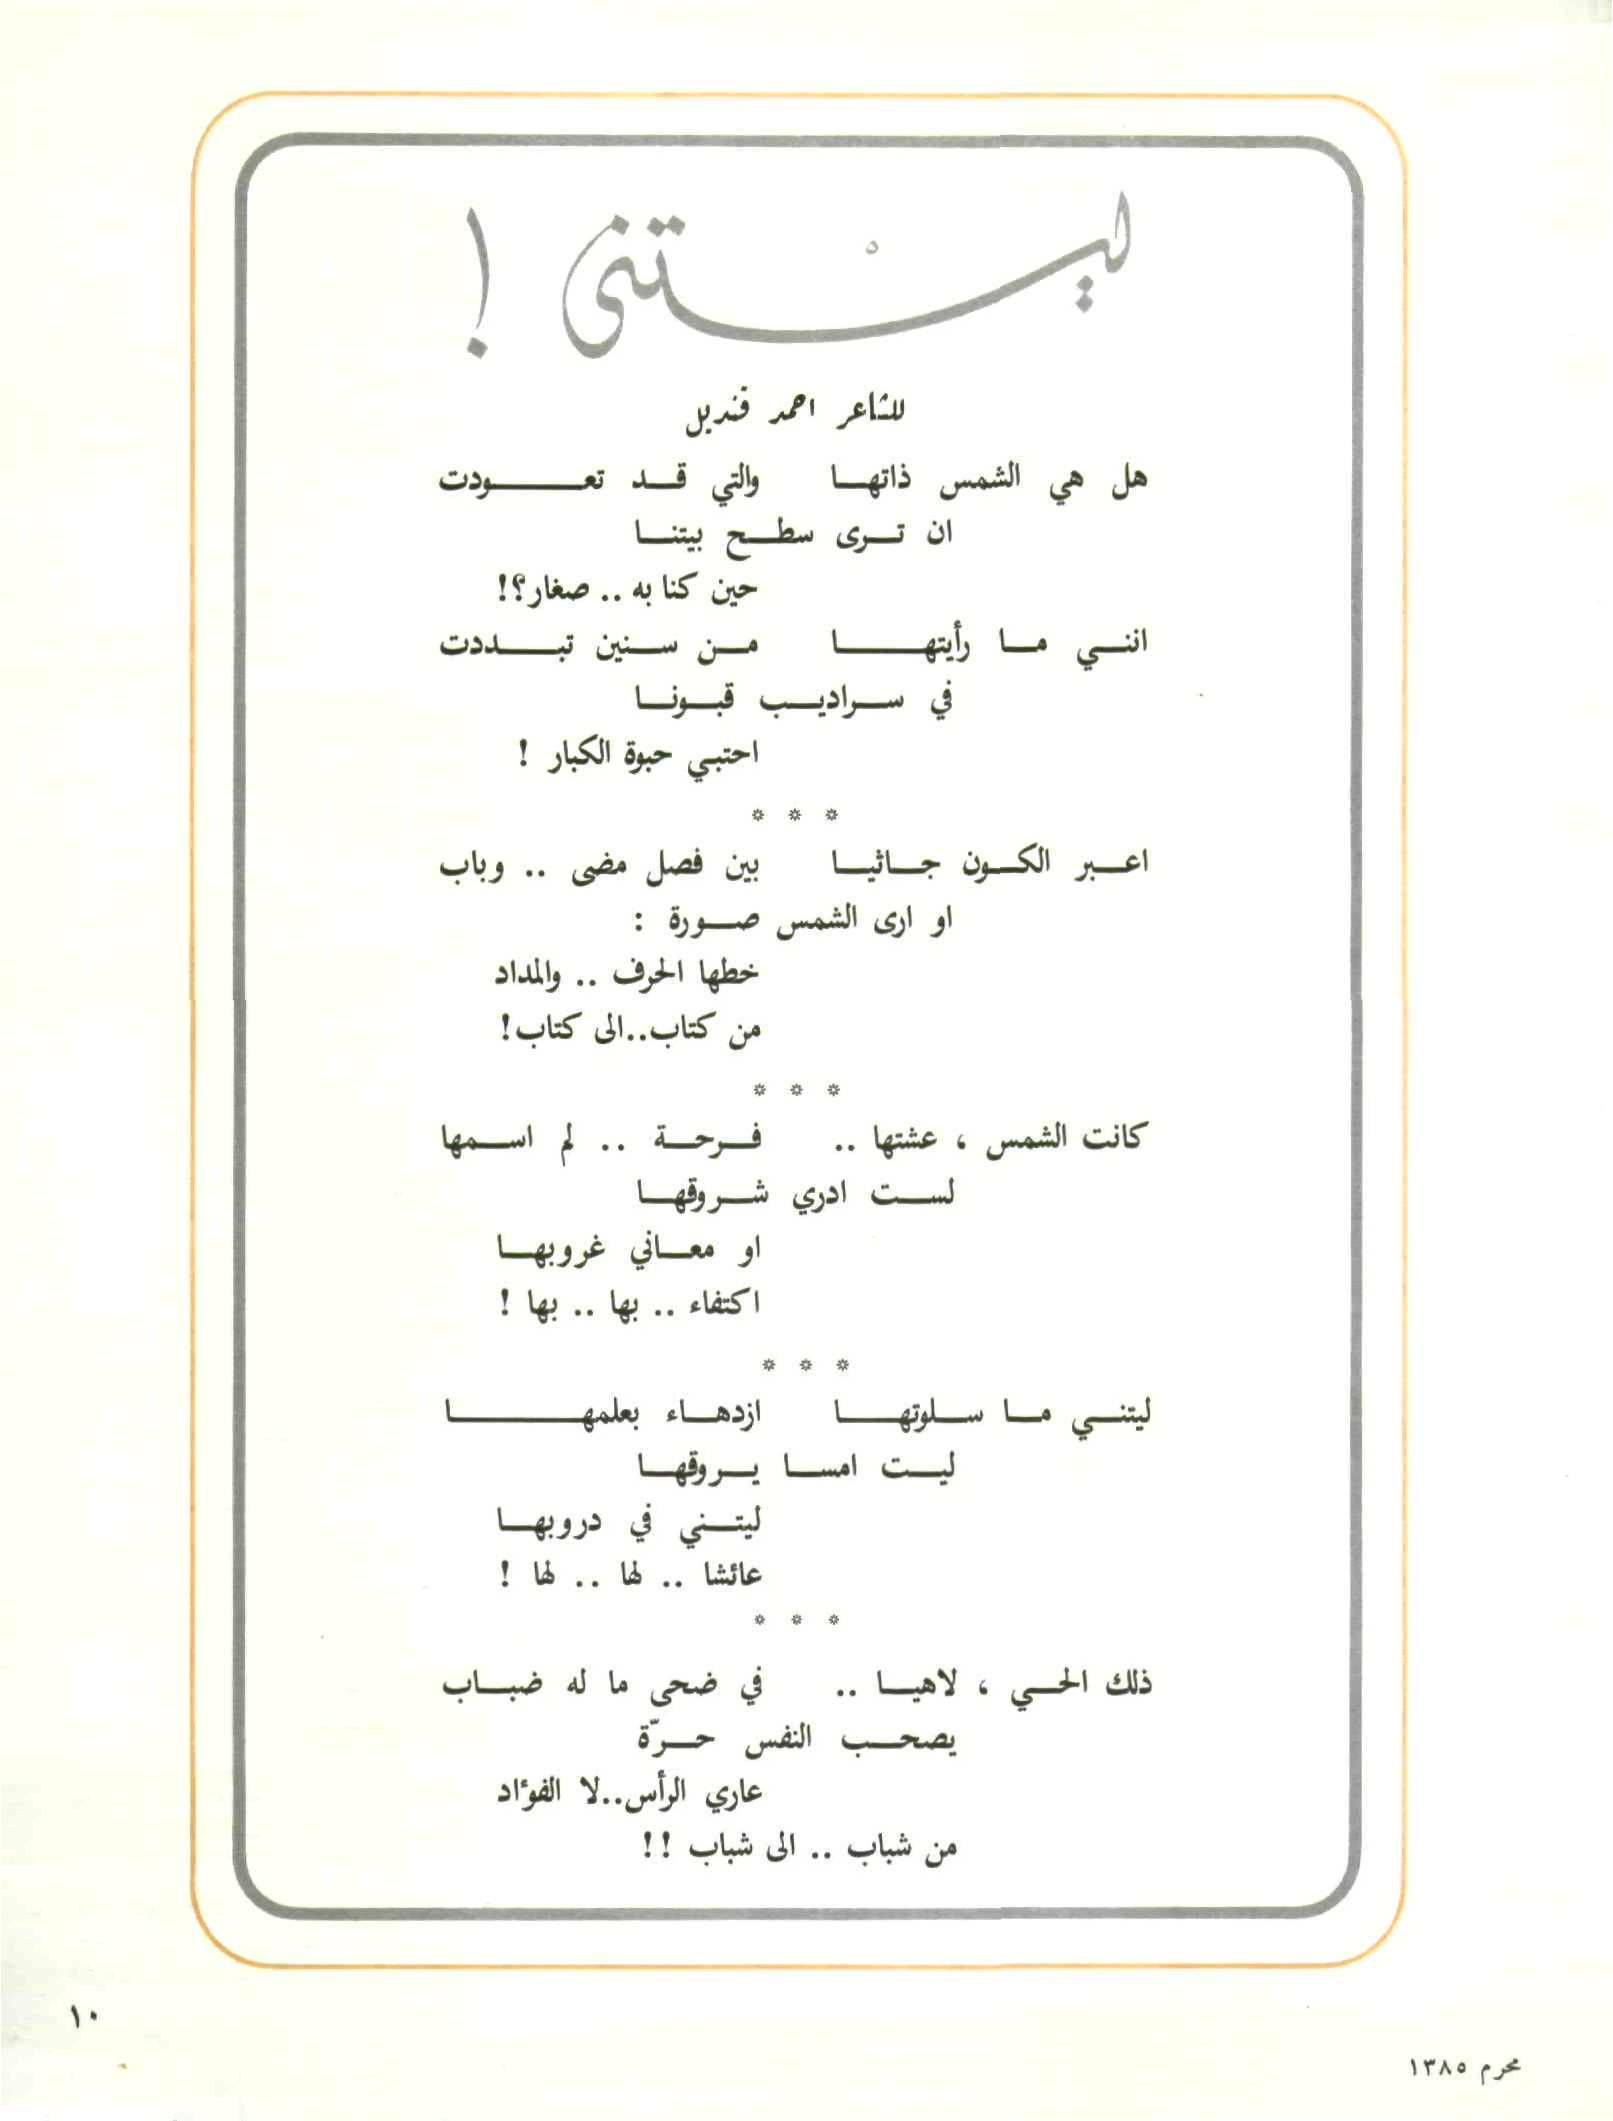 ليتني !
للشاعر احمد قنديل
هل هي الشمس ذاتها والتي قد تعودت
ان ترى سطح بيتنا
حين كنا به .. صغار؟!
انني ما رأيتها من سنين تبددت
في سراديب قبونا
احتبي حبوة الكبار !
* * *
اعبر الكون جاثيا بين فصل مضى .. وباب
او ارى الشمس صورة :
خطها الحرف .. والمداد
من كتاب..الى كتاب!
* * *
كانت الشمس ، عشتها .. فرحة .. لم اسمها
لست ادري شروقها
او معاني غروبها
اكتفاء .. بها .. بها !
* * *
ليتني ما سلوتها ازدهاء بعلمها
ليت امسا يروقها
ليتني في دروبها
عائشا .. لها .. لها !
* * *
ذلك الحي ، لاهيا .. في ضحى ما له ضباب
يصحب النفس حرّة
عاري الرأس..لا الفؤاد
من شباب .. الى شباب !!
١٠
محرم ١٣٨٥